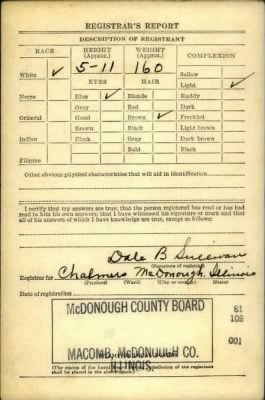 REGISTRAR'S REPORT
DESCRIPTION OF REGISTRANT
RACE HEIGHT (Approx.) WEIGHT (Approx.) COMPLEXION
White ✓ 5-11 160 Sallow
EYES HAIR Light ✓
Negro Blue ✓ Blonde Ruddy
Gray Red Dark
Oriental Hazel Brown ✓ Freckled
Brown Black Light brown
Indian Black Gray Dark brown
Bald Black
Filipino
Other obvious physical characteristics that will aid in identification
I certify that my answers are true; that the person registered has read or has had
read to him his own answers; that I have witnessed his signature or mark and that
all of his answers of which I have knowledge are true, except as follows:
Dale B
(Signature of registrar)
Registrar for Chalmers McDonough Illinois
(Precinct) (Ward) (City or county) (State)
Date of registration
McDONOUGH COUNTY BOARD 61
109
001
MACOMB, McDONOUGH CO.
ILLINOIS
(The stamp of the Local Board having jurisdiction of the registrant
shall be placed in the above space.)